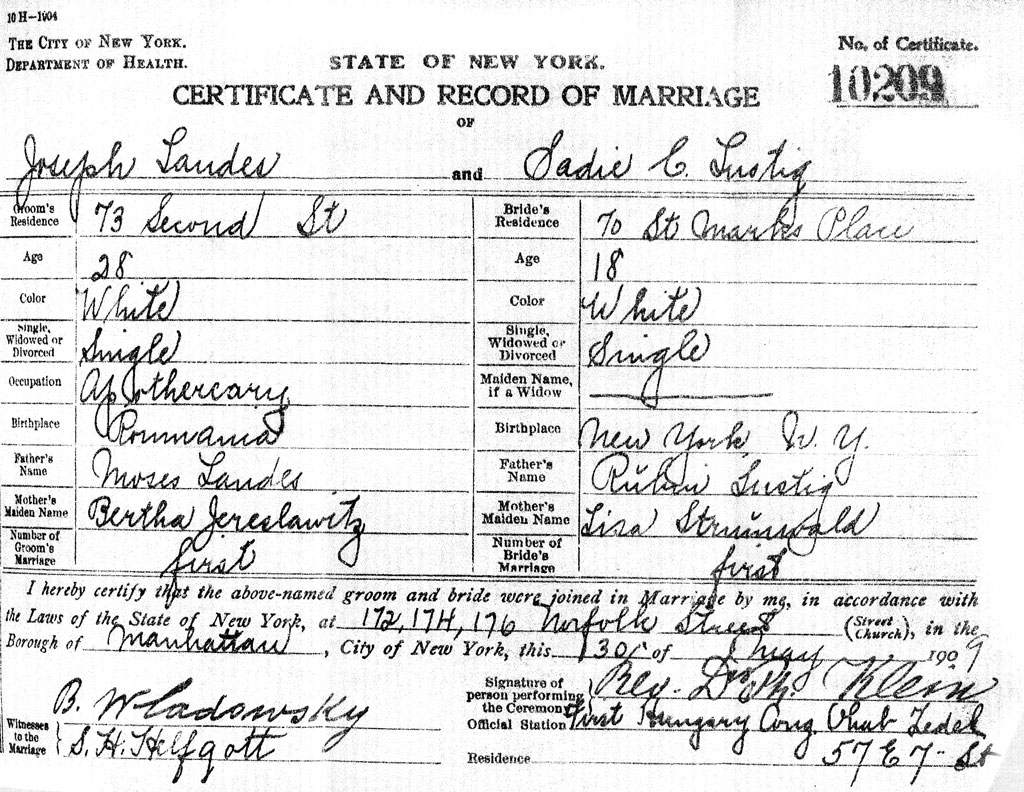 10 H—1904
THE CITY OF NEW YORK.
DEPARTMENT OF HEALTH.
No. of Certificate.
10209
STATE OF NEW YORK.
CERTIFICATE AND RECORD OF MARRIAGE
OF
Joseph Landes and Sadie C. Lustig
Groom's Residence 73 Second St Bride's Residence 70 St Marks Place
Age 28 Age 18
Color White Color White
Single, Widowed or Divorced Single Single, Widowed or Divorced Single
Occupation Apothercary Maiden Name, if a Widow
Birthplace Roumania Birthplace New York, N. Y.
Father's Name Moses Landes Father's Name Rubin Lustig
Mother's Maiden Name Bertha Jereslawitz Mother's Maiden Name Lisa Strunwald
Number of Groom's Marriage first Number of Bride's Marriage first
I hereby certify that the above-named groom and bride were joined in Marriage by me, in accordance with
the Laws of the State of New York, at 172, 174, 176 Norfolk Street (Street Church), in the
Borough of Manhattan, City of New York, this 30 of May 1909
Witnesses to the Marriage B. Wladowsky
S. H. Helfgott
Signature of person performing the Ceremony Rev. Dr. Ph. Klein
Official Station First Hungary Cong. Ohab Zedek
Residence 57 E 7 St